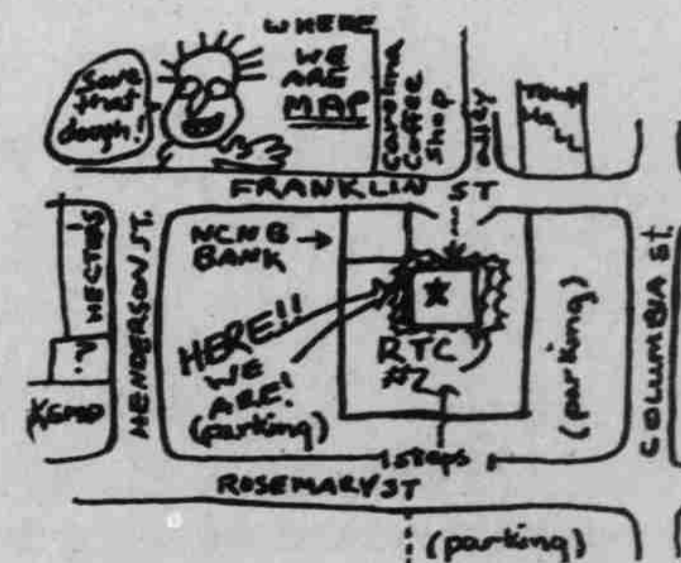 Save
that
dough!
WHERE
WE
ARE
MAP
Carolina
Coffee
Shop
alley
FRANKLIN ST
HECTORS
?
HENDERSON ST.
NCNB →
BANK
HERE!!
WE
ARE!
(parking)
RTC
#2
(parking)
COLUMBIA St.
steps
ROSEMARY ST
(parking)